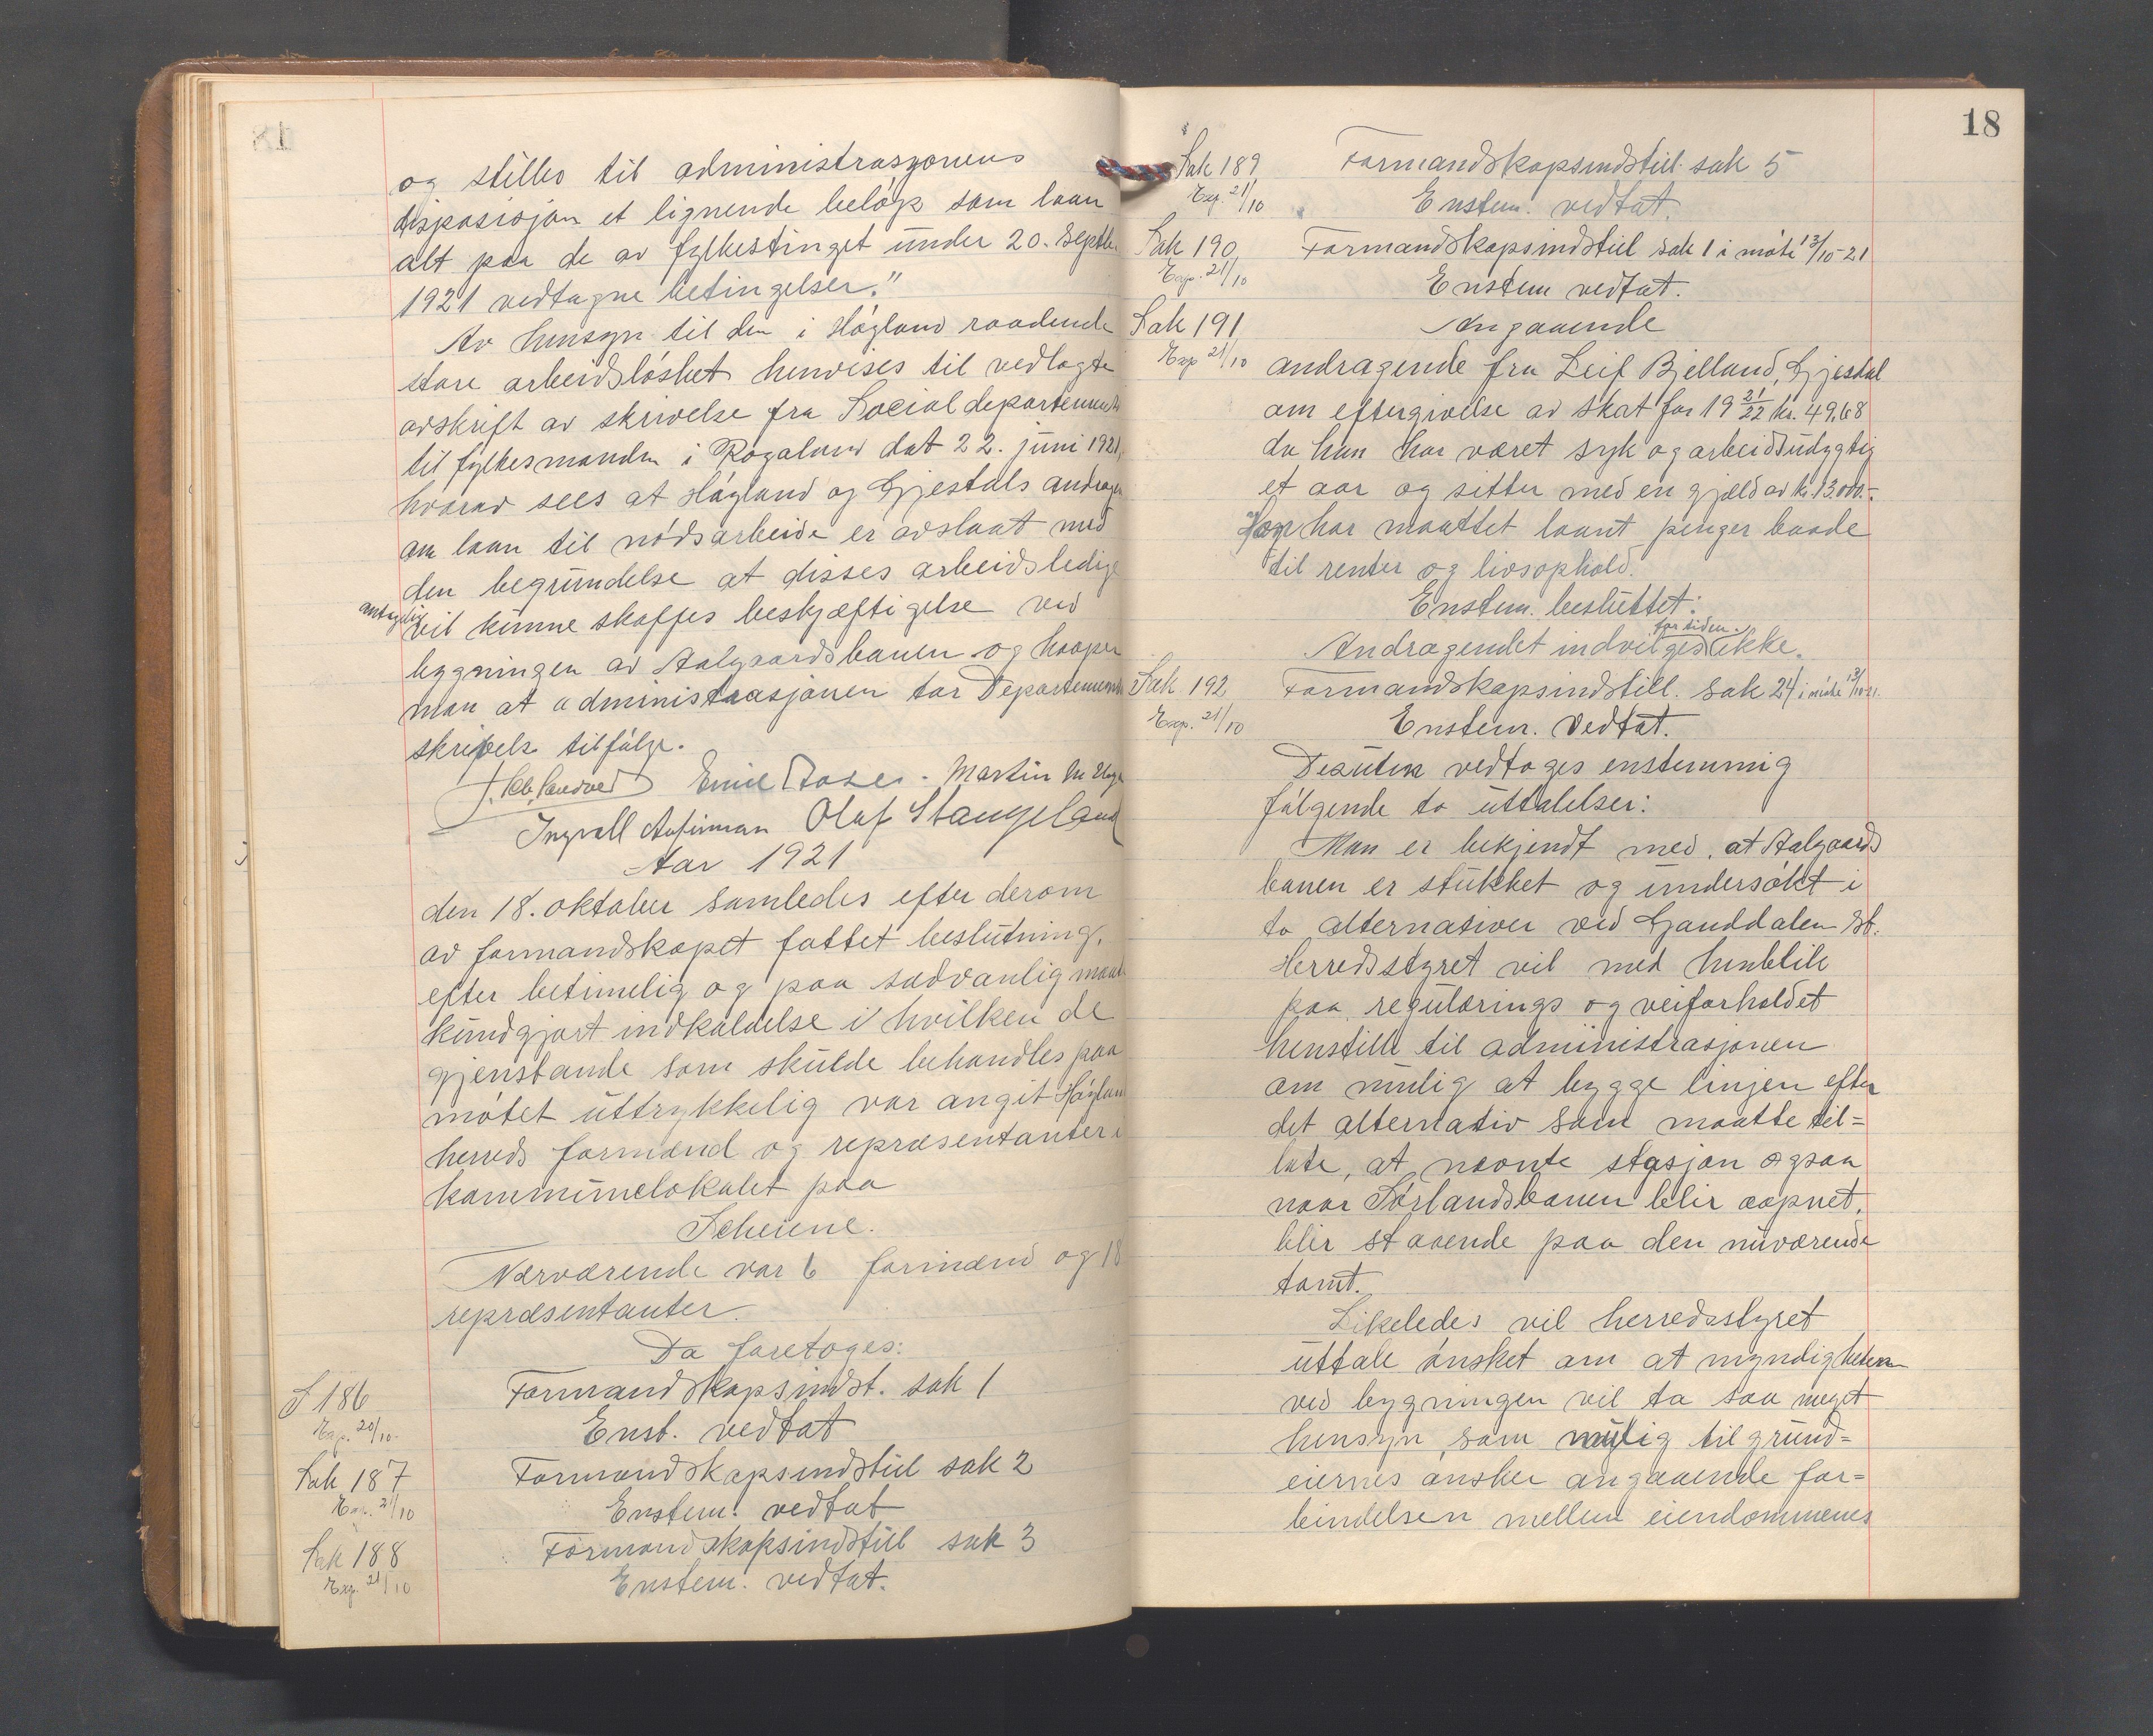 og stilles til administrasjonens
disposisjon et lignende beløp som laan
alt paa de av fylkestinget under 20. septbr
1921 vedtagne betingelser."
Av hensyn til den i Høyland raadende
store arbeidsløshet henvises til vedlagte
avskrift av skrivelse fra Socialdepartementet
til fylkesmanden i Rogaland dat 22. juni 1921,
hvorav sees at Høyland og Gjestals andragen
om laan til nødsarbeide er avslaat med
den begrundelse at disses arbeidsledige
antagelig
vil kunne skaffes beskjæftigelse ved
bygningen av Aalgaardsbanen og haaper
man at administrasjonen tar Departementets
skrivelse tilfølge.
Emil Martin
Ingvall Olaf Stangeland
Aar 1921
den 18. oktober samledes efter derom
av formandskapet fattet beslutning,
efter betimelig og paa sædvanlig maate
kundgjort indkaldelse i hvilken de
gjenstande som skulde behandles paa
møtet uttrykkelig var angit Høyland
herreds formænd og repræsentanter i
kommunelokalet paa
Scheiene.
Nærværende var 6 formænd og 18
repræsentanter.
Da foretoges:
S 186 Formandskapsindst. sak 1
Exp. 20/10. Enst. vedtat
Sak 187 Formandskapsindstill sak 2
Exp. 21/10 Enstem. vedtat
Sak 188 Formandskapsindstill sak 3
Exp. 21/10 Enstem. vedtat.
18
Sak 189 Formandskapsindstill. sak 5
Exp. 21/10 Enstem. vedtat.
Sak 190 Formandskapsindstill sak 1 i møte 13/10-21
Exp. 21/10 Enstem vedtat.
Sak 191 Angaaende
Exp 21/10 andragende fra Leif Bjelland, Gjestal
om eftergivelse av skat for 19 21/22 kr. 49,68
da han har været syk og arbeidsudygtig
et aar og sitter med en gjæld av kr. 13.000.-.
Han har maattet laant penger baade
til renter og livsophold.
Enstem. besluttet:
for tiden
Andragendet indvilges ikke.
Sak 192 Formandskapsindstill. sak 24 i møte 13/10-21.
Exp. 21/10 Enstem. Vedtat.
Desuten vedtages enstemmig
følgende to uttalelser:
Man er bekjendt med, at Aalgaards
banen er stukket og undersøkt i
to alternativer ved Ganddalen st.
Herredsstyret vil med henblik
paa regulerings og veiforholdet
henstille til administrasjonen
om mulig at bygge linjen efter
det alternativ som maatte til=
late, at nævnte stasjon ogsaa
naar Sørlandsbanen blir aapnet,
blir staaende paa den nuværende
tomt.
Likeledes vil herredsstyret
uttale ønsket om at myndigheterne
ved bygningen vil ta saa meget
hensyn som mulig til grund=
eiernes ønsker angaaende for=
bindelsen mellem eiendommenes